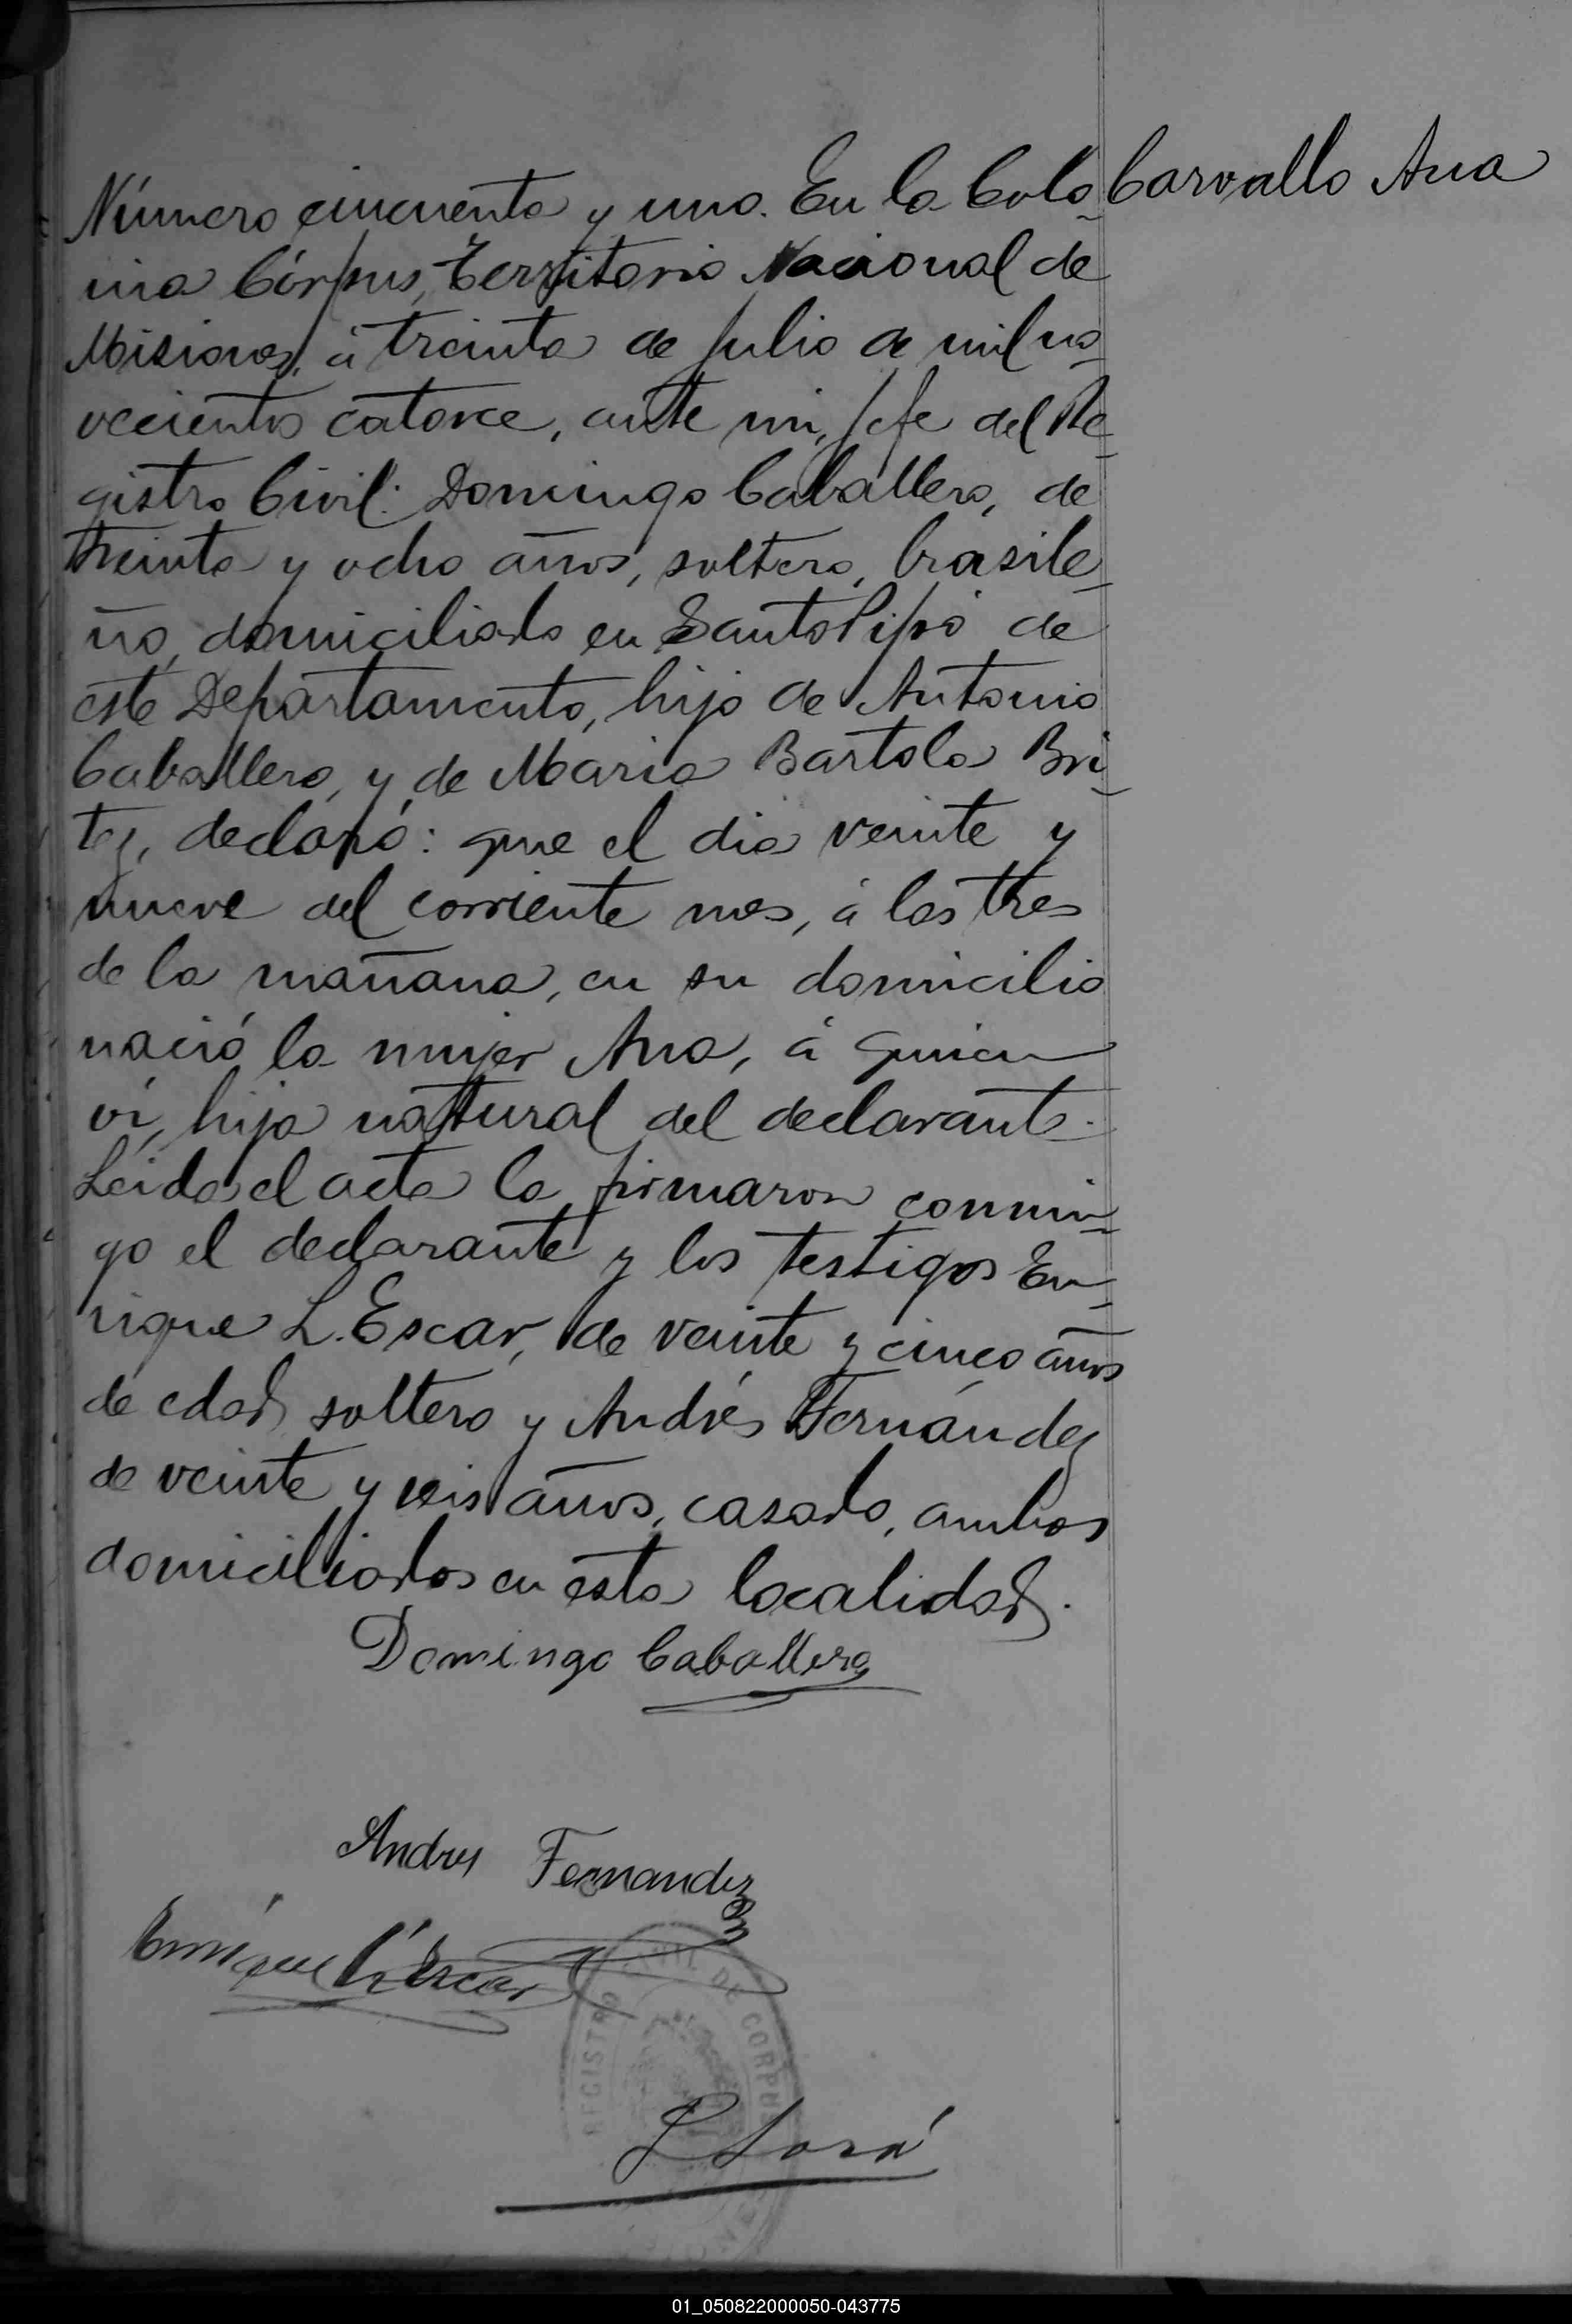 Carvallo Ana
Número cincuenta y uno. En la Colo-
nia Córpus, Territorio Nacional de
Misiones, á treinta de Julio de mil no-
vecientos catorce, ante mi, Jefe del Re-
gistro Civil: Domingo Caballero, de
treinta y ocho años, soltero, brasile-
ño, domiciliado en Santo Pipó de
este Departamento, hijo de Antonio
Caballero, y de Maria Bartola Bri-
tez, declaró: que el dia veinte y
nueve del corriente mes, á las tres
de la mañana, en su domicilio
nació la mujer Ana, á quien
ví, hija natural del declarante.
Leida el acta la firmaron conmi-
go el declarante y los testigos En-
rique L. Escar, de veinte y cinco años
de edad, soltero y Andrés Fernández
de veinte y seis años, casado, ambos
domiciliados en esta localidad.
Domingo Caballero
Andres Fernandez
Enrique L. Escar
REGISTRO CIVIL DE CORPUS
01_050822000050-043775